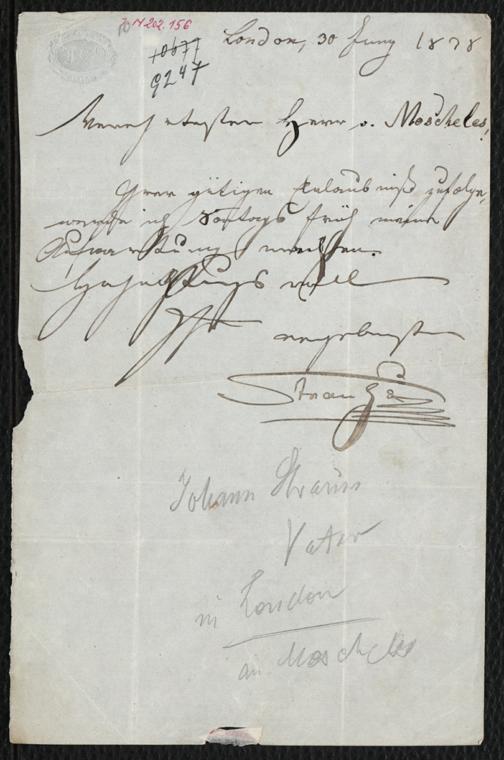 JN 202.156
10677
9247
London, 30 Juny 1838
Verehrtester Herr v. Moscheles,
Ihrer gütigen Erlaubniß zufolge,
werde ich Sontags früh meine
Aufwartung machen.
Hochachtungsvoll
Ihr
ergebenster
Strauß
Johann Strauss
Vater
in London
an Moscheles